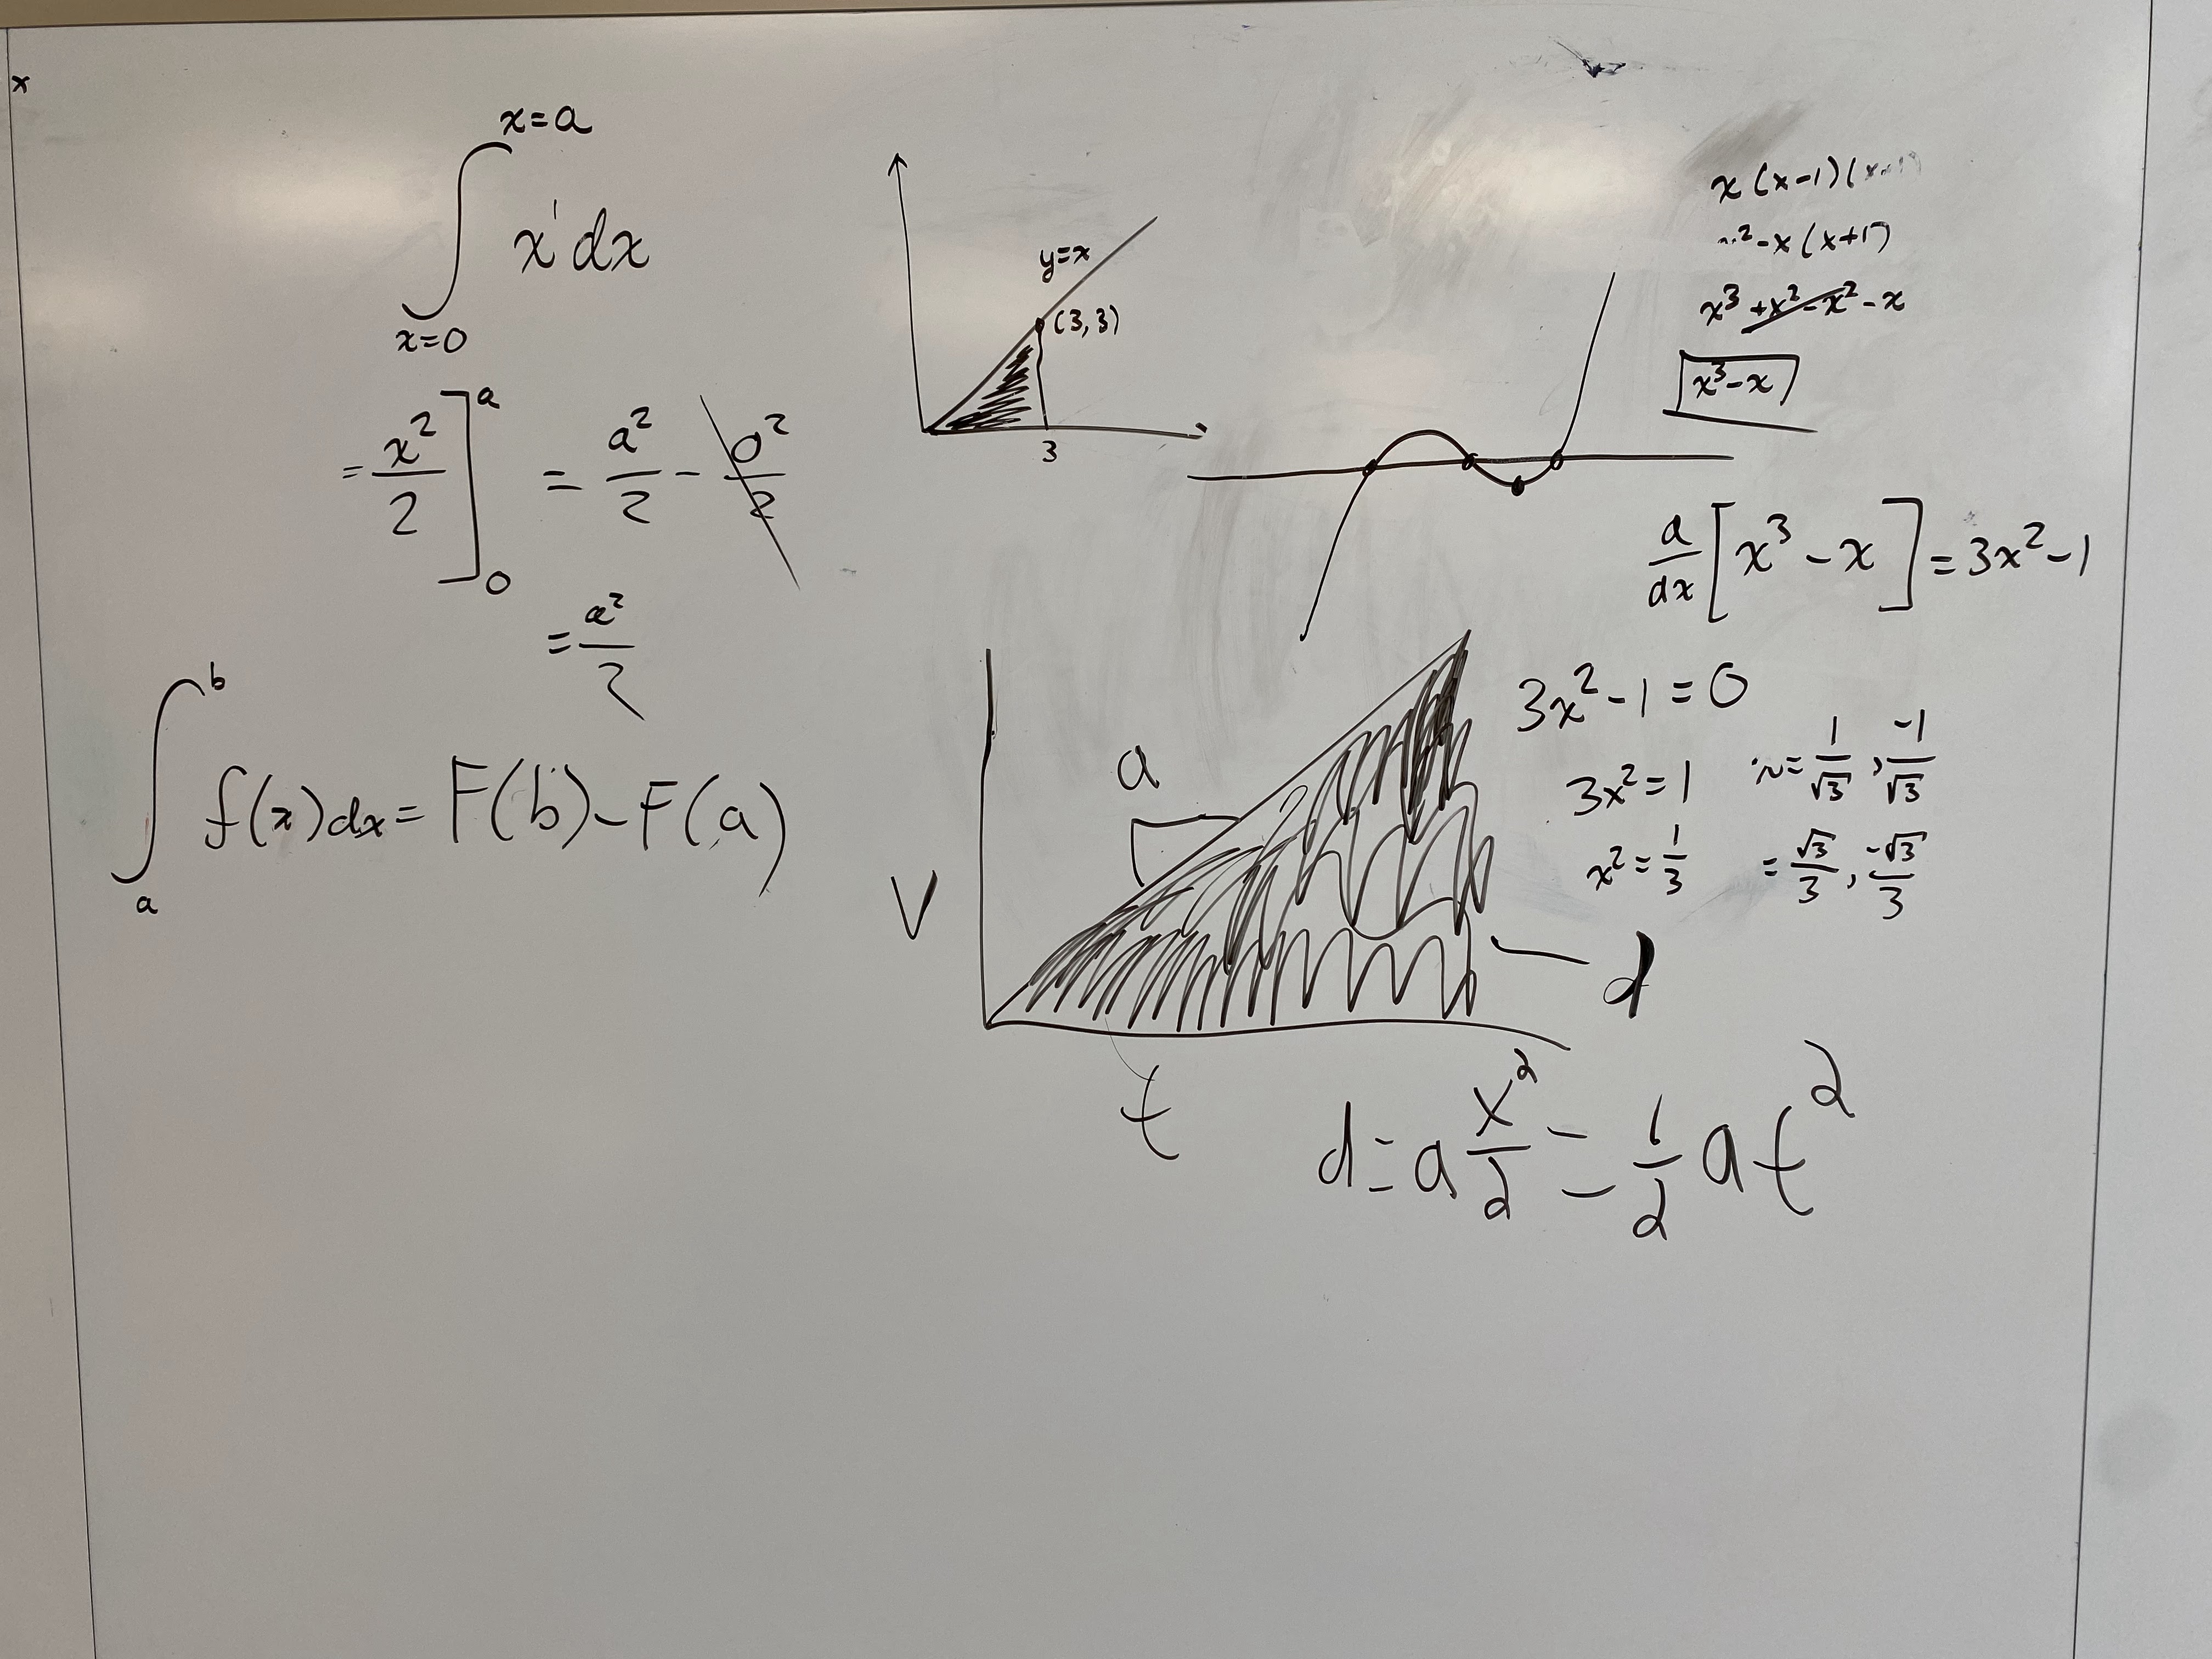 x
x=a
∫ x¹ dx
x=0
= x²/2 ]₀ᵃ = a²/2 - 0²/2
= a²/2
∫ₐᵇ f(x)dx = F(b) - F(a)
y=x
(3,3)
3
x(x-1)(
²-x(x+1)
x³+x²-x²-x
x³-x
d/dx [x³-x] = 3x²-1
3x²-1=0
3x²=1
x²=1/3
= 1/√3, -1/√3
= √3/3, -√3/3
a
V
d
t
d = a x²/2 = 1/2 at²